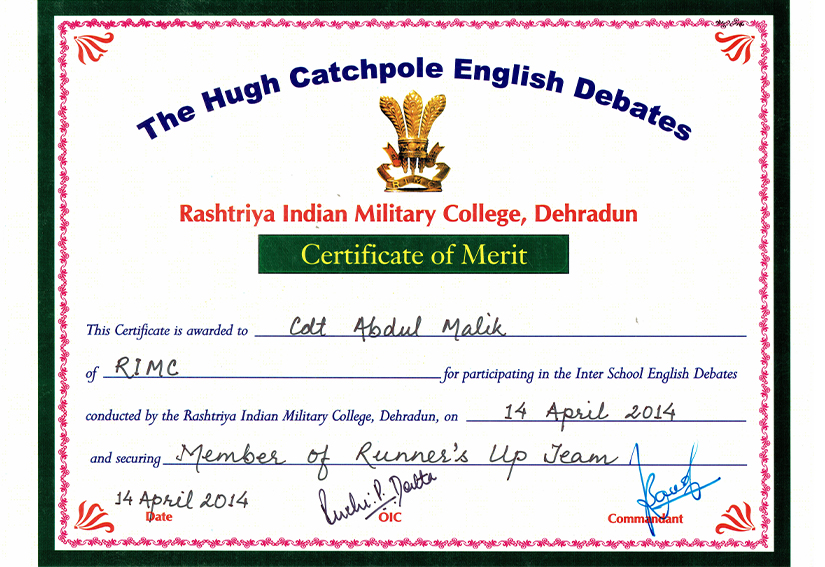 The Hugh Catchpole English Debates
Rashtriya Indian Military College, Dehradun
Certificate of Merit
This Certificate is awarded to Cdt Abdul Malik
of RIMC for participating in the Inter School English Debates
conducted by the Rashtriya Indian Military College, Dehradun, on 14 April 2014
and securing Member of Runner's Up Team
14 April 2014 Ruchi.P. Datta
Date OIC Commandant